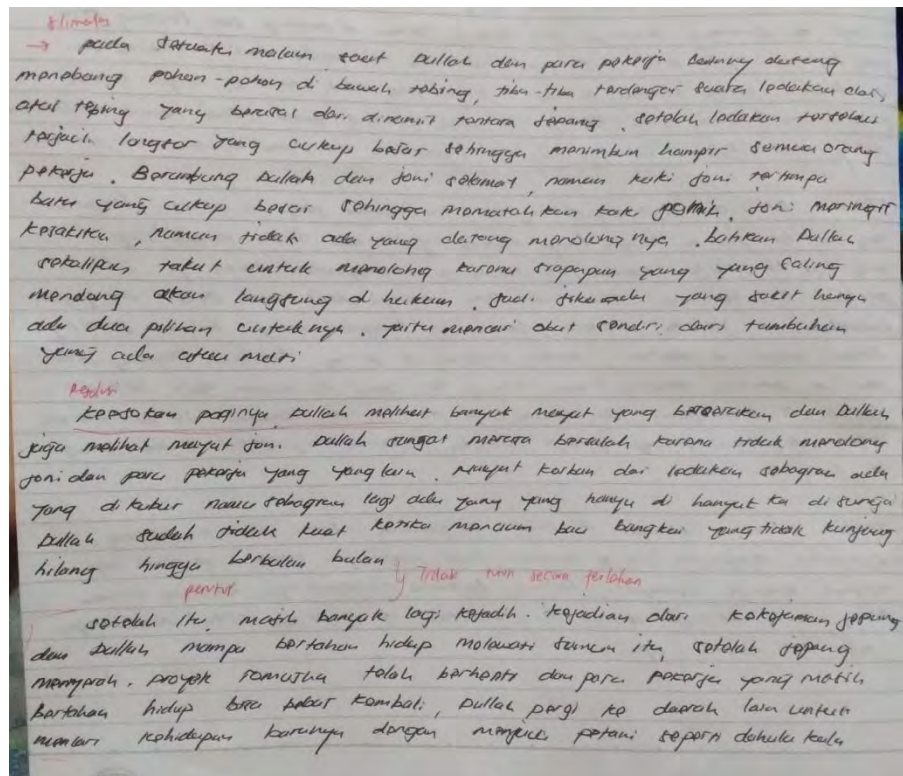 klimaks
→ pada sesuatu malam saat Dullah dan para pekerja sedang
menebang pohon-pohon di bawah tebing, tiba-tiba terdengar suara ledakan dari
atas tebing yang berasal dari dinamit tentara Jepang. setelah ledakan tersebut
terjadi longsor yang cukup besar sehingga menimbun hampir semua orang
pekerja. Beruntung Dullah dan Joni selamat, namun kaki Joni tertimpa
batu yang cukup besar sehingga mematahkan kaki. Joni meringis
kesakitan, namun tidak ada yang datang menolongnya. bahkan Dullah
sekalipun takut untuk menolong karena siapapun yang yang saling
akan langsung di hukum. Jadi jika ada yang sakit hanya
ada dua pilihan untuknya. yaitu mencari obat sendiri dari tumbuhan
yang ada atau mati
Resolusi
keesokan paginya Dullah melihat banyak mayat yang berserakan dan Dullah
juga melihat mayat Joni. Dullah sangat merasa bersalah karena tidak menolong
Joni dan para pekerja yang yang lain. Mayat korban dari ledakan sebagian ada
yang di kubur namu sebagian lagi ada yang yang hanya di hanyut ka di sungai
Dullah sudah tidak kuat ketika mencium bau bangkai yang tidak kunjung
hilang hingga berbulan bulan
Tidak turun secara perlahan
penutup
setelah itu, masih banyak lagi kejadian dari kekejaman Jepang
dan Dullah mampu bertahan hidup melewati semua itu, setelah Jepang
menyerah. proyek romusha telah berhenti dan para pekerja yang masih
bertahan hidup bisa bebas kembali, Dullah pergi ke daerah lain untuk
mencari kehidupan barunya dengan menjadi petani seperti dahulu kala